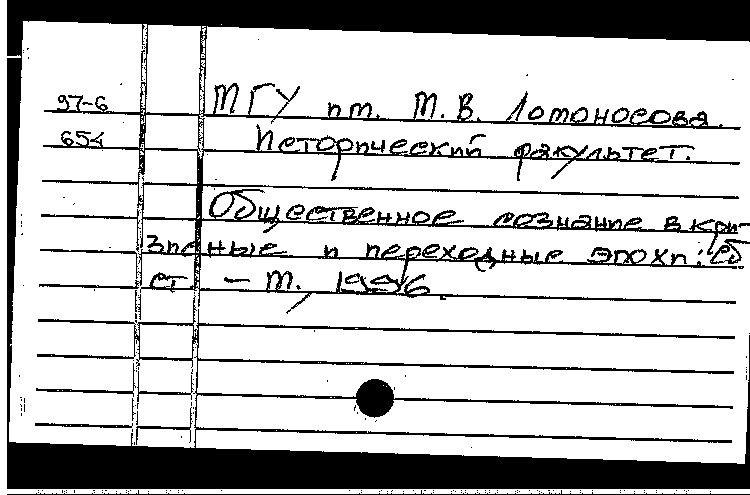 97-6 МГУ им. М.В. Ломоносова.
654 Исторический факультет.
Общественное сознание в кри-
зисные и переходные эпохи: Сб
ст. – М., 1996.